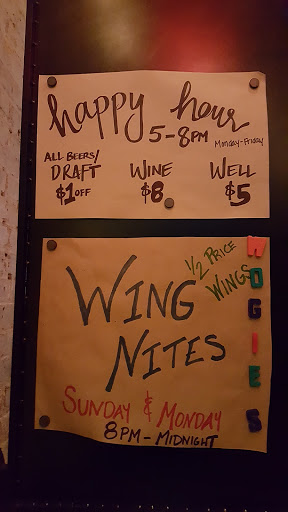 happy hour
5-8PM
Monday-Friday
ALL BEERS/
DRAFT
$1 OFF
WINE
$8
WELL
$5
1/2 PRICE
WINGS
WING
NITES
SUNDAY & MONDAY
8PM - MIDNIGHT
WOGIES